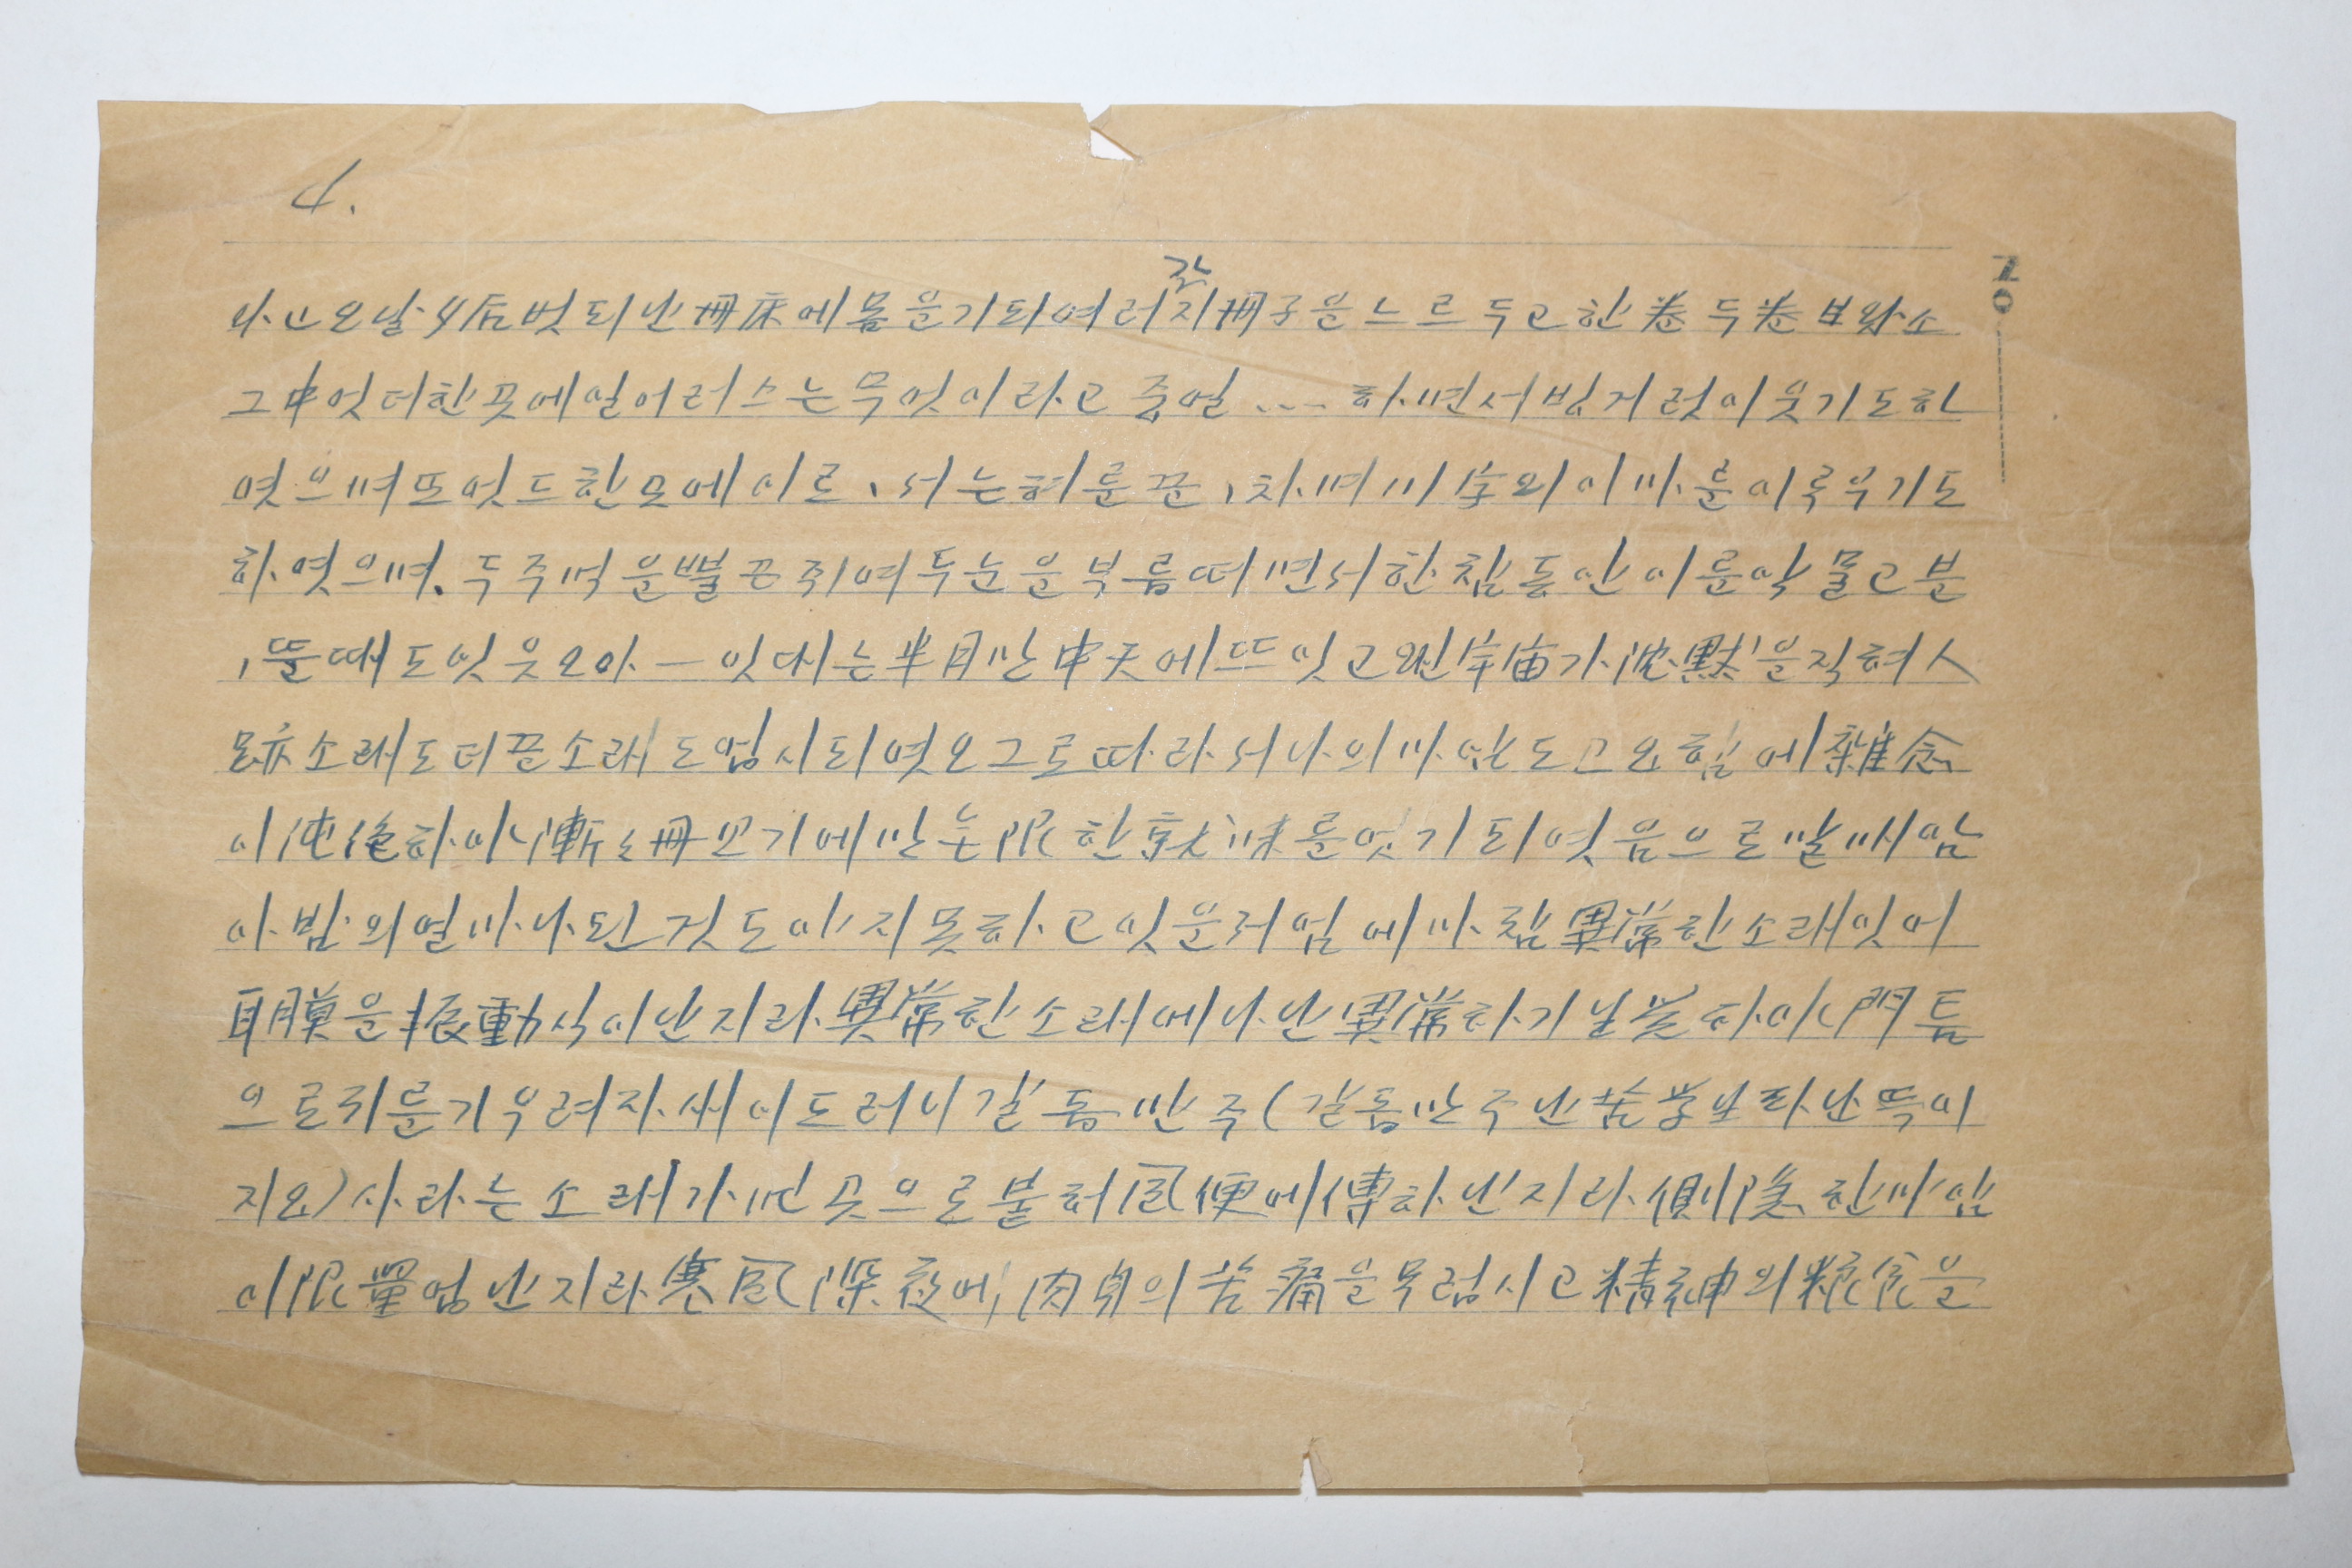 4.
No
나고 오날 夕后 벗되난 冊床에 몸을 기되여 러 각지 冊子을 느르두고 한卷 두卷 보와소
그中 엇더한 곳에 일어러스는 무엇이라고 중얼.... 하면서 빙거럿이 웃기도 한
엿으며 또 엇드한 모에 이르、서는 혀를 끈、차며 川字의 이마를 이루우기도
하엿으며、두 주먹을 뿔끈 쥐여 두 눈을 부름떠면서 한참동안 이를 악물고 분
、뚤 때도 잇웃오아 — 잇대는 半月만 中天에 뜨잇고 왼 宇宙가 沈默을 직혀 人
跡소래도 더끈소래도 업시 되엿오 그로 따라서 나의 마암도 고요함에 雜念
이 하야 漸々 冊 보기에만 无限한 趣味를 엇기 되엿음으로 말매암
아 밤의 얼마나 된 것도 아지 못하고 잇을 러임에 마참 異常한 소래 잇어
耳膜을 振動식이난지라 異常한 소래에 나난 異常하기 날 하야 門틈
으로 귀를 기우려 자새이 드러니 갈돔만주(갈돔만주난 苦学生 파난 떡이
지요) 사라는 소래가 먼 곳으로붙허 風便에 傳하난지라 惻隱한 마암
이 限量업난지라 寒風 深夜에 肉身의 苦痛을 무럼시고 精神의 糧食을